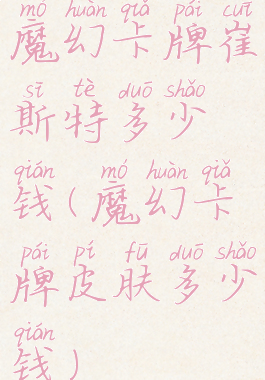 mó huàn qiǎ pái cuī
魔幻卡牌崔
sī tè duō shǎo
斯特多少
qián mó huàn qiǎ
钱(魔幻卡
pái pí fū duō shǎo
牌皮肤多少
qián
钱)